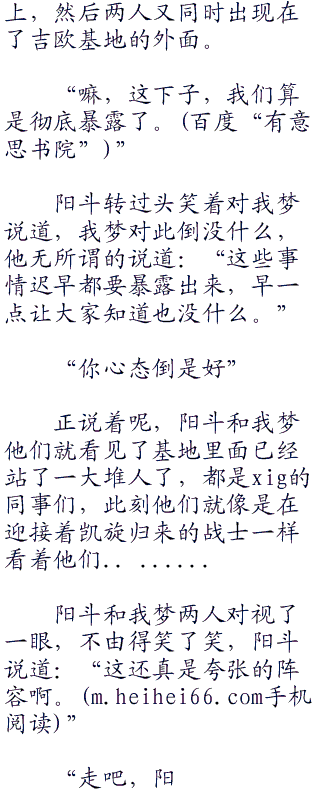 上，然后两人又同时出现在
了吉欧基地的外面。
“嘛，这下子，我们算
是彻底暴露了。(百度“有意
思书院”)”
阳斗转过头笑着对我梦
说道，我梦对此倒没什么，
他无所谓的说道：“这些事
情迟早都要暴露出来，早一
点让大家知道也没什么。”
“你心态倒是好”
正说着呢，阳斗和我梦
他们就看见了基地里面已经
站了一大堆人了，都是xig的
同事们，此刻他们就像是在
迎接着凯旋归来的战士一样
看着他们.. ......
阳斗和我梦两人对视了
一眼，不由得笑了笑，阳斗
说道：“这还真是夸张的阵
容啊。(m.heihei66.com手机
阅读)”
“走吧，阳